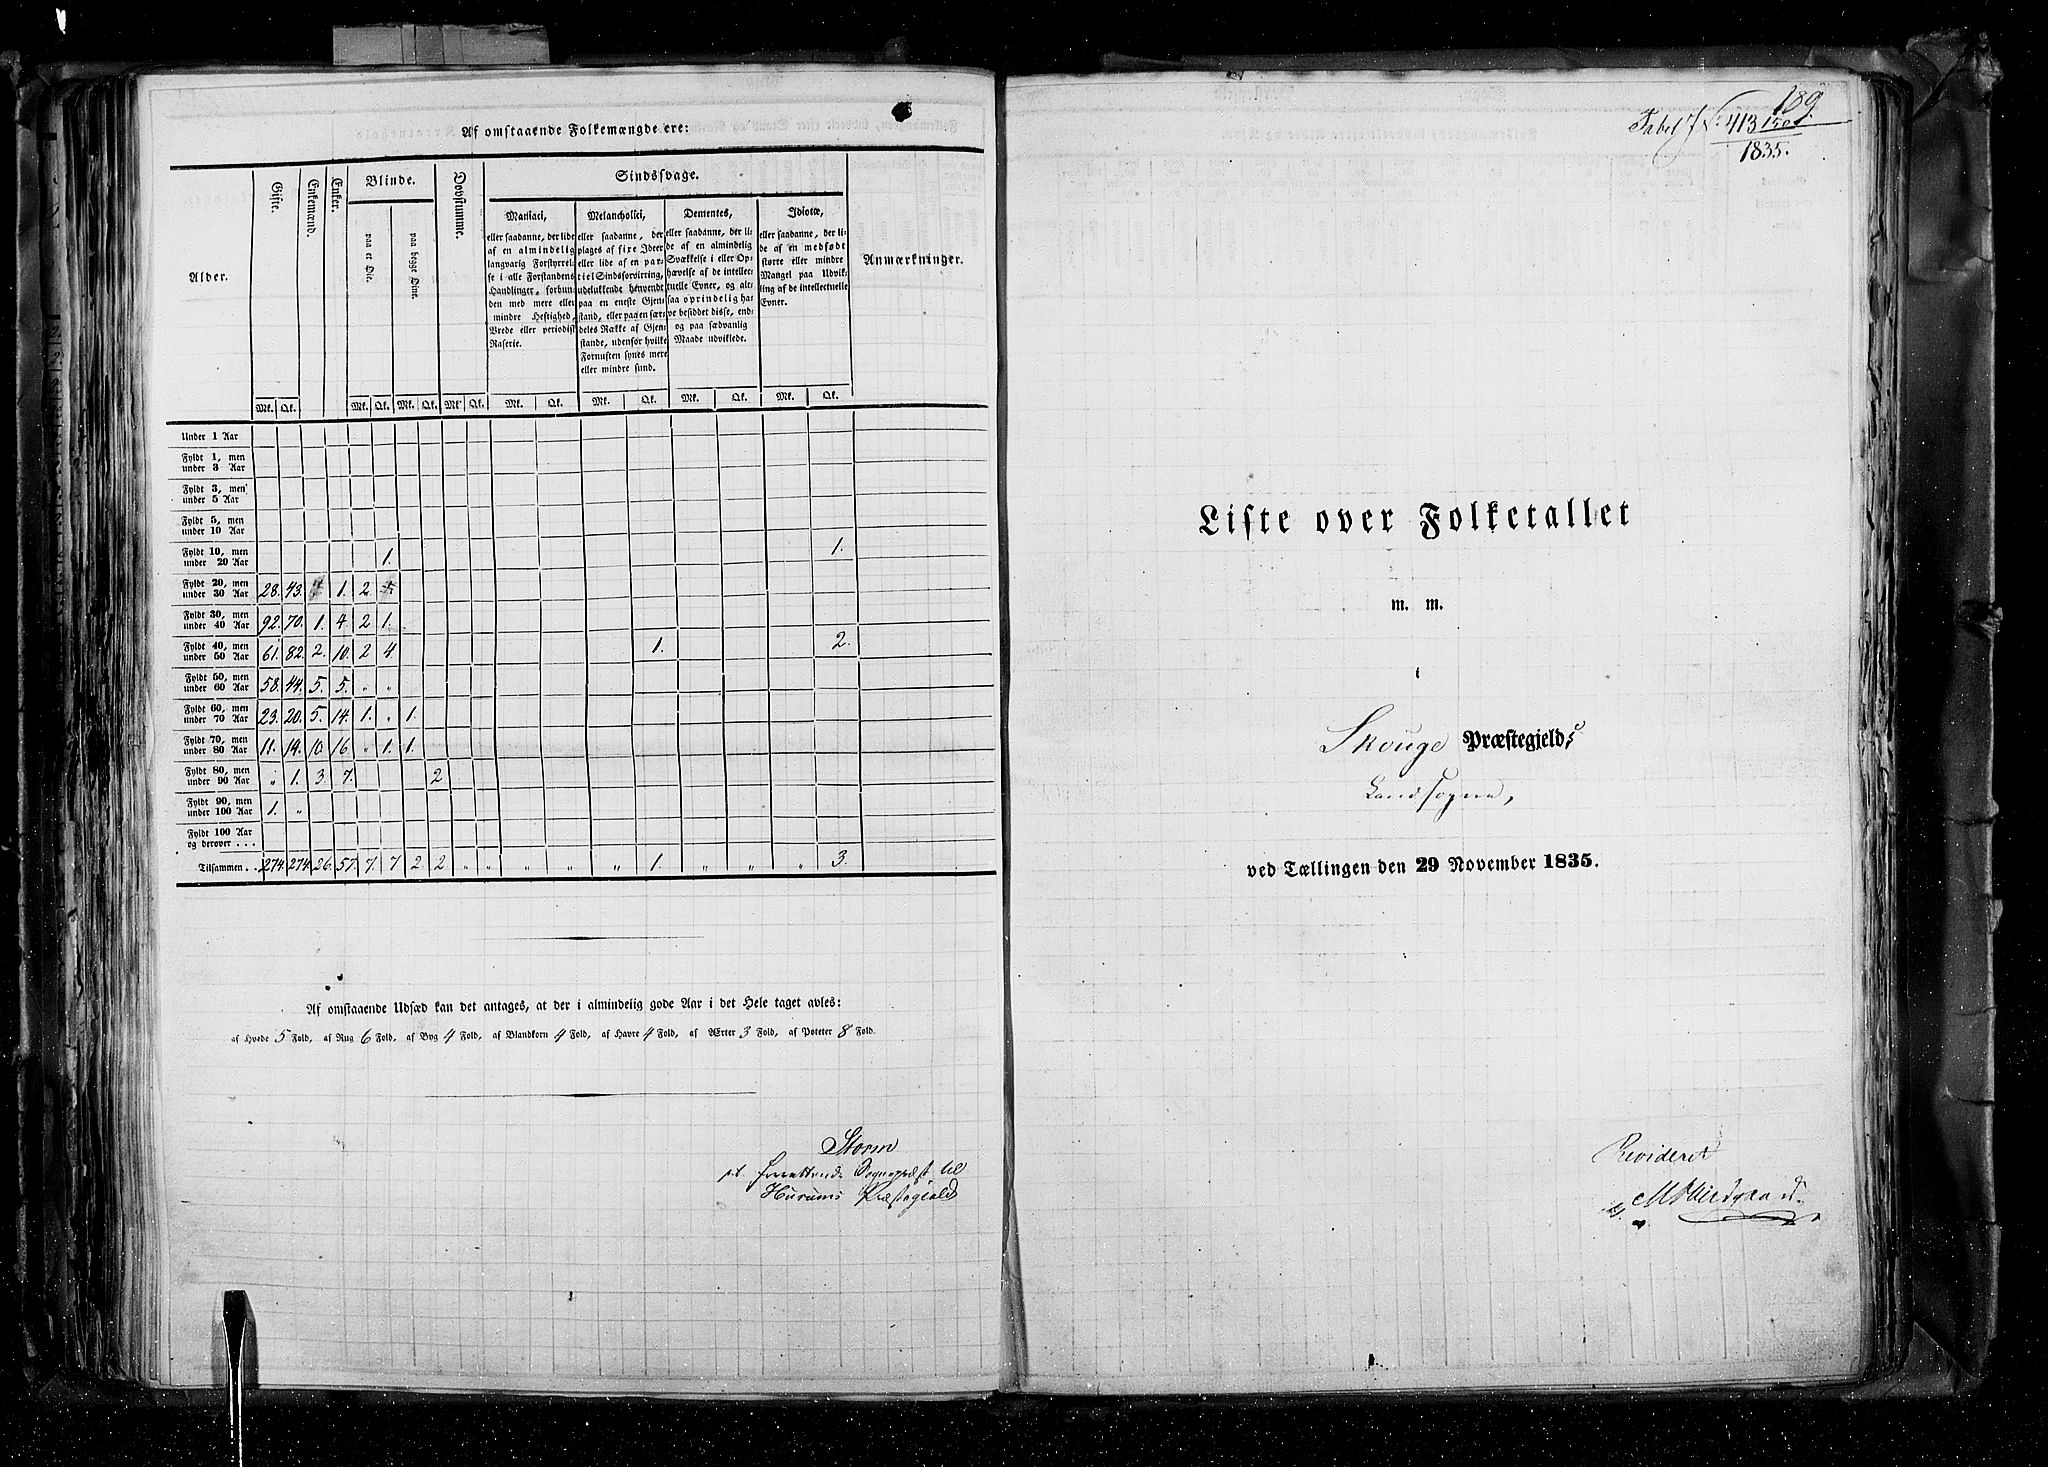 Af omstaaende Folkemængde ere:
Alder.
Gifte.
Enkemænd.
Enker.
Blinde.
paa et Øie.
paa begge Øine.
Døvstumme.
Sindssvage.
Maniaci,
eller saadanne, der lide
af en almindelig
langvarig Forstyrrel-
se i alle Forstandens
Handlinger, forbun-
den med mere eller
mindre Heftighed,
Vrede eller periodisk
Raserie.
Melancholici,
eller saadanne, der
plages af fixe Ideer
eller lide af en par-
tiel Sindsforvirring,
udelukkende henvendt
paa en eneste Gjen-
stand, eller paa en sær-
deles Række af Gjen-
stande, udenfor hvilke
Fornuften synes mere
eller mindre sund.
Dementes,
eller saadanne, der li-
de af en almindelig
Svækkelse i eller Op-
hævelse af de intellec-
tuelle Evner, og alt-
saa oprindelig ha-
ve besiddet disse, end-
og paa sædvanlig
Maade udviklede.
Idiotæ,
eller saadanne, der li-
de af en medfødt
større eller mindre
Mangel paa Udvik-
ling af de intellectuelle
Evner.
Anmærkninger.
Mk. Qk. Mk. Qk. Mk. Qk. Mk. Qk. Mk. Qk. Mk. Qk. Mk. Qk. Mk. Qk.
Under 1 Aar
Fyldt 1, men
under 3 Aar
Fyldt 3, men
under 5 Aar
Fyldt 5, men
under 10 Aar
Fyldt 10, men
under 20 Aar 1. 1.
Fyldt 20, men
under 30 Aar 28. 43. 1. 2
Fyldt 30, men
under 40 Aar 92. 70. 1. 4. 2 1.
Fyldt 40, men
under 50 Aar 61. 82. 2. 10. 2 4 1. 2.
Fyldt 50, men
under 60 Aar 58. 44. 5. 5. " "
Fyldt 60, men
under 70 Aar 23. 20. 5. 14. 1. " 1.
Fyldt 70, men
under 80 Aar 11. 14. 10. 16. " 1. 1.
Fyldt 80, men
under 90 Aar " 1. 3. 7. 2
Fyldt 90, men
under 100 Aar 1. "
Fyldt 100 Aar
og derover . . .
Tilsammen . . 274. 274. 26. 57. 7. 7 2 2 " " " " " 1. " " " 3.
Af omstaaende Udsæd kan det antages, at der i almindelig gode Aar i det Hele taget avles:
af Hvede 5 Fold, af Rug 6 Fold, af Byg 4 Fold, af Blandkorn 4 Fold, af Havre 4 Fold, af Ærter 3 Fold, af Poteter 8 Fold.
Storm
Sognepræst til
Hurums Præstegield
189
Tabel No. 413
1835.
Liste over Folketallet
m. m.
i
Skouge Præstegjelds
Landsogne,
ved Tællingen den 29 November 1835.
Revideret